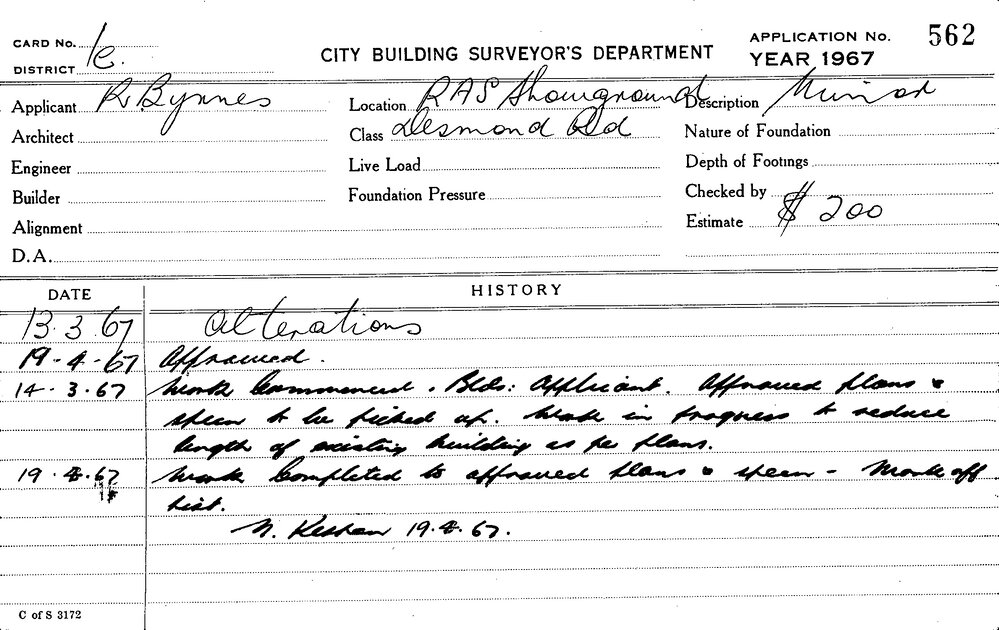 CARD No. 1c.
DISTRICT
CITY BUILDING SURVEYOR'S DEPARTMENT
APPLICATION No. 562
YEAR 1967
Applicant R Bynnes
Location RAS Showground
Description Minor
Architect
Class Desmond Rd
Nature of Foundation
Engineer
Live Load
Depth of Footings
Builder
Foundation Pressure
Checked by
Alignment
Estimate $ 200
D.A.
DATE HISTORY
13.3.67 Alterations
19-4-67 Approved.
14-3.67 Work Commenced. Bldr: Applicant. Approved plans &
specn to be picked up. Work in progress to reduce
length of existing building as per plans.
19.4.67 Work Completed to approved plans & specn - Mark off
list.
19.4.67.
C of S 3172